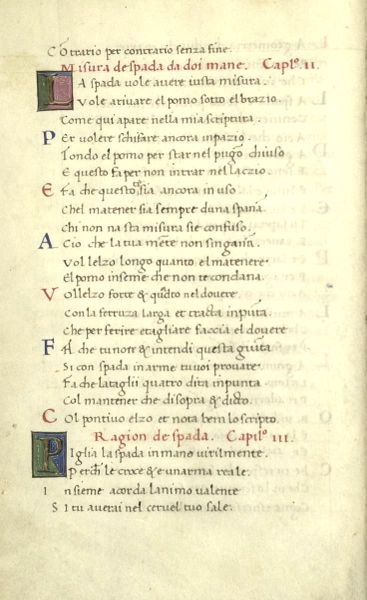 Cõtrario per contrario senza fine.
Misura de spada da doi mane. Capl° II.
LA spada vole avere iusta misura.
Vole arivare el pomo sotto el brazio.
Come qui apare nella mia scriptura.
PEr volere schifare ancora inpazio.
Tondo el pomo per star nel pugno chiuso
E questo fa per non intrar nel laczio.
EFa che questo sia ancora in uso
Chel matener sia sempre duna spana
Chi non na sta misura sie confuso.
ACio che la tua mẽte non singanna.
Vol lelzo longo quanto el matenere.
El pomo inseme che non te condana.
VOl lelzo forte & quadro nel dovere
Con la ferruza larga et tracta inpũta.
Che per ferire et agliare faccia el dovere
FA che tu note & intendi questa giunta
Si con spada in arme tu voi provare.
Fa che la tagli quatro dita inpunta
Col mantener che disopra & dicto.
COl pontivo elzo et nota bem lo scripto.
Ragion de spada. Capil° III.
PIglia la spada in mano virilmente.
Perch'le croce & e un arma reale.
Insieme acorda lanimo valente
Si tu averai nel cervel tuo sale.